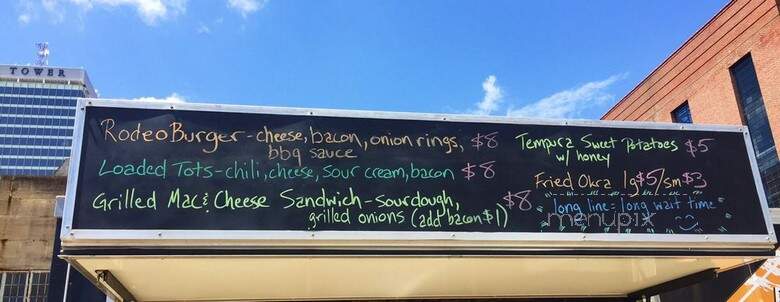 TOWER
Rodeo Burger - cheese, bacon, onion rings, $8
bbq sauce
Loaded Tots - chili, cheese, sour cream, bacon $8
Grilled Mac & Cheese Sandwich - sourdough, $8
grilled onions (add bacon $1)
Tempura Sweet Potatoes $5
w/ honey
Fried Okra lg $5/sm $3
long line = long wait time
menupix